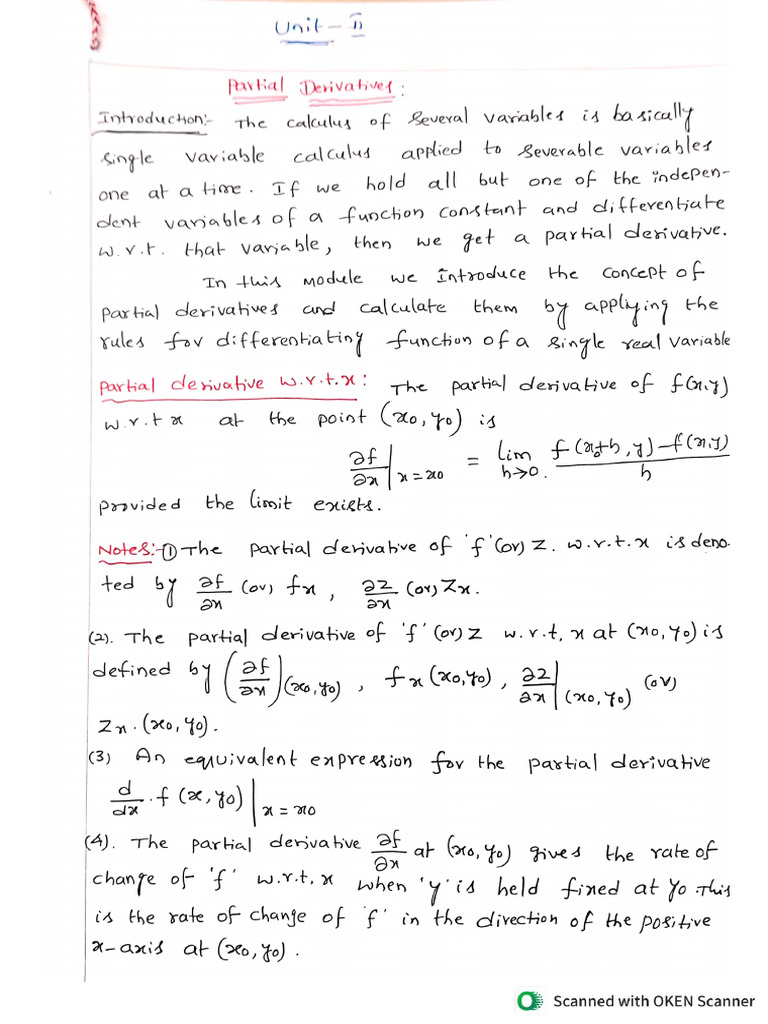 Unit - II
Partial Derivatives:
Introduction:- The calculus of Several variables is basically
single variable calculus applied to severable variables
one at a time. If we hold all but one of the indepen-
dent variables of a function constant and differentiate
w.r.t. that variable, then we get a partial derivative.
In this module we Introduce the concept of
partial derivatives and calculate them by applying the
rules for differentiating function of a single real variable
partial derivative w.r.t.x: The partial derivative of f(x,y)
w.r.t x at the point (x0, y0) is
∂f/∂x | x=x0 = lim h→0. f(x0+h, y)-f(x,y) / h
provided the limit exists.
Notes:- ① The partial derivative of 'f' (or) z. w.r.t.x is deno.
ted by ∂f/∂x (or) fx, ∂z/∂x (or) Zx.
(2). The partial derivative of 'f' (or) z w.r.t, x at (x0, y0) is
defined by (∂f/∂x)(x0, y0), fx(x0, y0), ∂z/∂x | (x0, y0) (or)
Zx. (x0, y0).
(3) An equivalent expression for the partial derivative
d/dx . f(x, y0) | x=x0
(4). The partial derivative ∂f/∂x at (x0, y0) gives the rate of
change of 'f' w.r.t, x when 'y' is held fixed at y0. This
is the rate of change of 'f' in the direction of the positive
x-axis at (x0, y0).
Scanned with OKEN Scanner